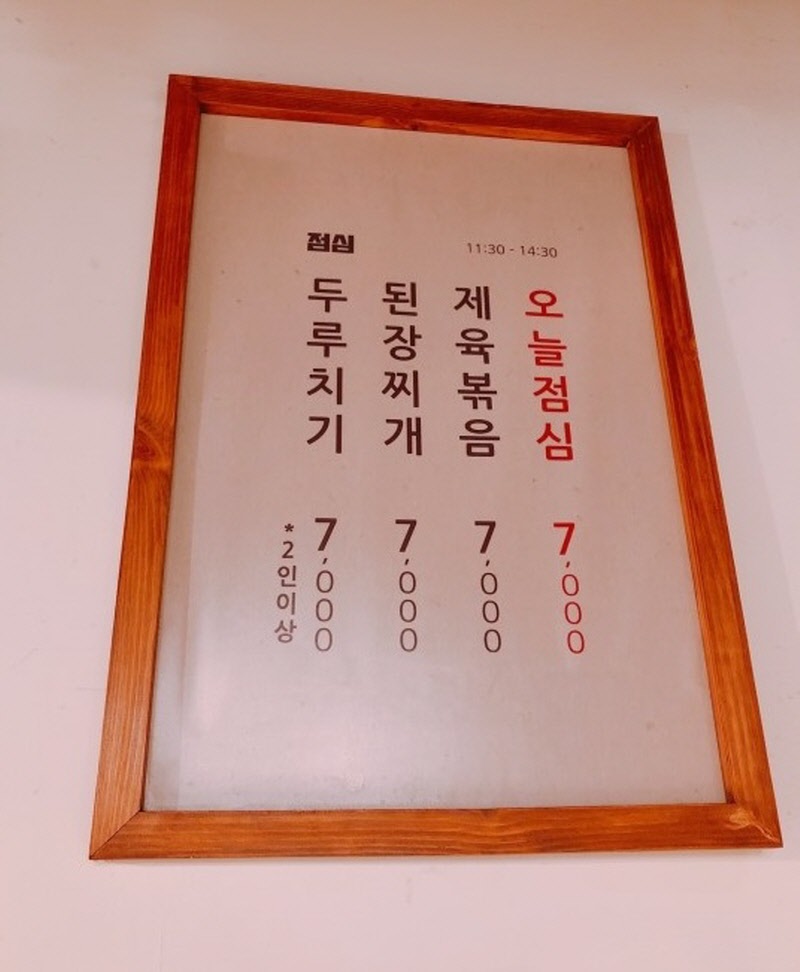 점심
11:30 - 14:30
오늘점심
7,000
제육볶음
7,000
된장찌개
7,000
두루치기
7,000
*2인이상